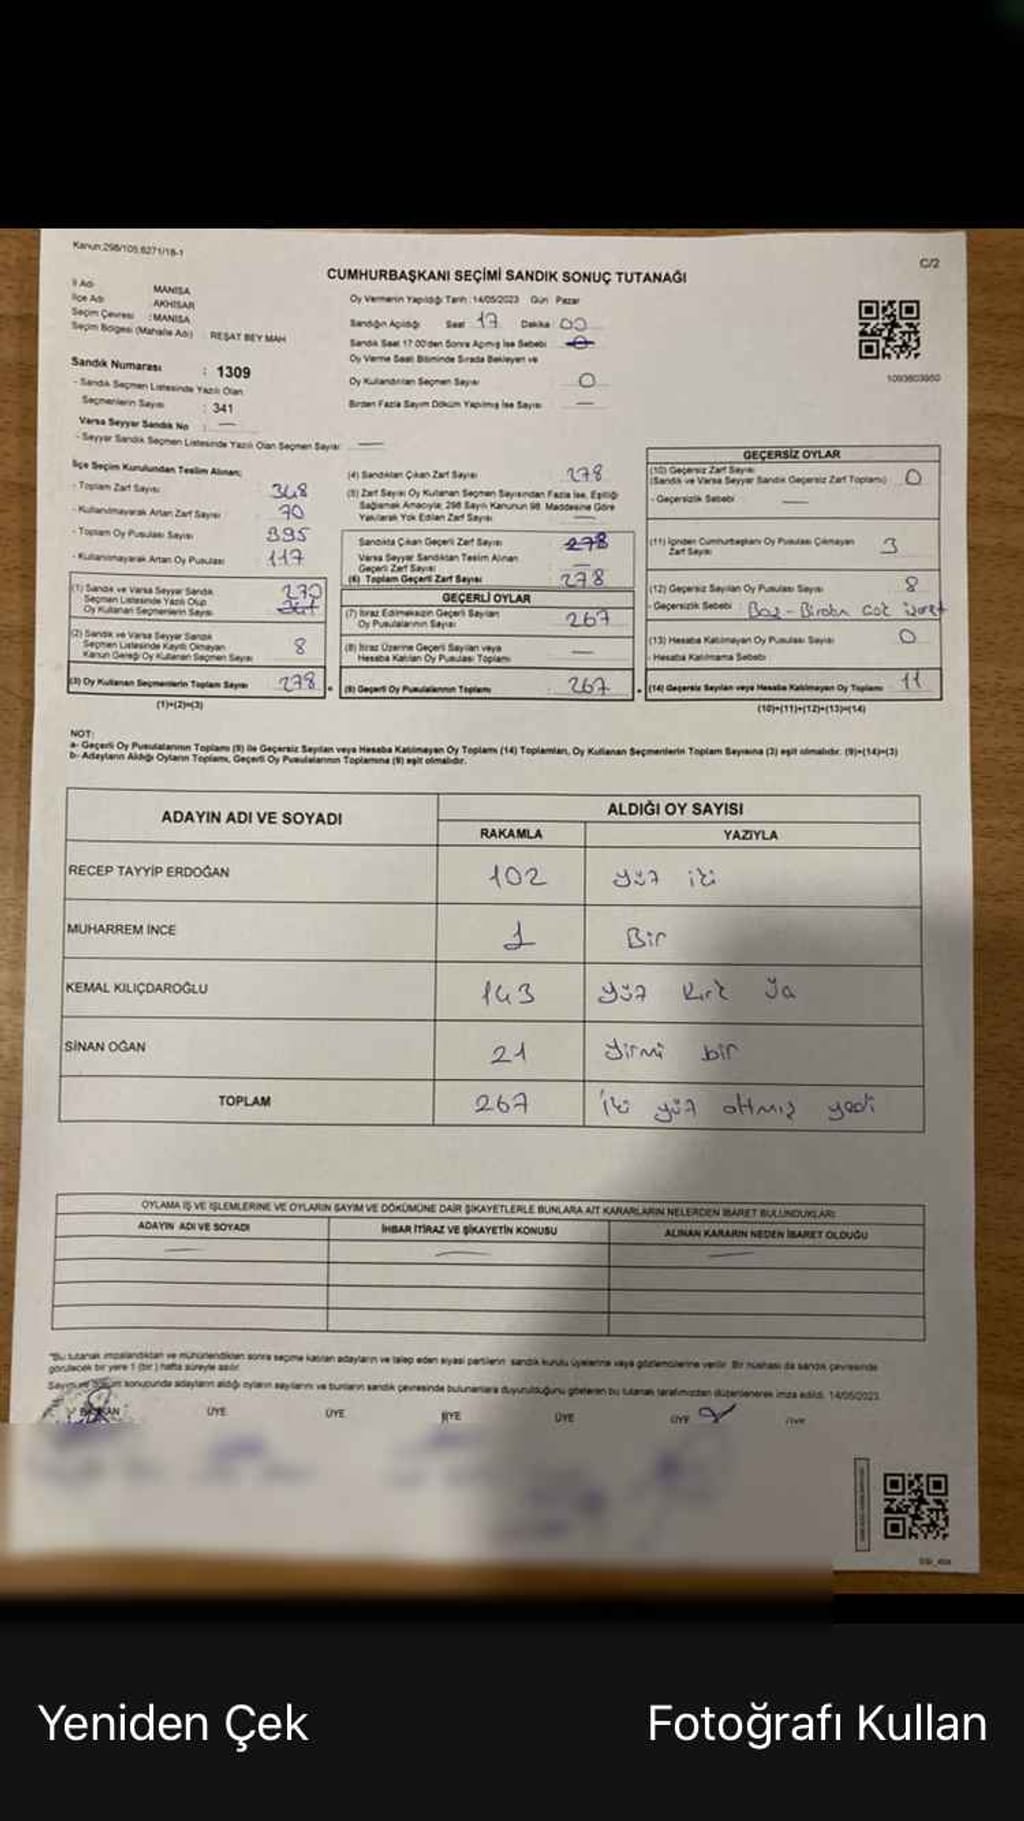 Kanun:298/105,6271/18-1
C/2
CUMHURBAŞKANI SEÇİMİ SANDIK SONUÇ TUTANAĞI
İl Adı MANİSA
İlçe Adı AKHİSAR
Seçim Çevresi :MANİSA
Seçim Bölgesi (Mahalle Adı) : REŞAT BEY MAH
Sandık Numarası : 1309
- Sandık Seçmen Listesinde Yazılı Olan
Seçmenlerin Sayısı : 341
Varsa Seyyar Sandık No : —
- Seyyar Sandık Seçmen Listesinde Yazılı Olan Seçmen Sayısı —
Oy Vermenin Yapıldığı Tarih :14/05/2023 Gün Pazar
Sandığın Açıldığı Saat 17 Dakika 00
Sandık Saat 17:00'den Sonra Açılmış İse Sebebi
Oy Verme Saati Bitiminde Sırada Bekleyen ve
Oy Kullandırılan Seçmen Sayısı 0
Birden Fazla Sayım Döküm Yapılmış İse Sayısı —
1093603950
İlçe Seçim Kurulundan Teslim Alınan;
- Toplam Zarf Sayısı 348
- Kullanılmayarak Artan Zarf Sayısı 70
- Toplam Oy Pusulası Sayısı 395
- Kullanılmayarak Artan Oy Pusulası 117
(1) Sandık ve Varsa Seyyar Sandık
Seçmen Listesinde Yazılı Olup
Oy Kullanan Seçmenlerin Sayısı 270
(2) Sandık ve Varsa Seyyar Sandık
Seçmen Listesinde Kayıtlı Olmayan
Kanun Gereği Oy Kullanan Seçmen Sayısı 8
(3) Oy Kullanan Seçmenlerin Toplam Sayısı 278
(1)+(2)=(3)
(4) Sandıktan Çıkan Zarf Sayısı 278
(5) Zarf Sayısı Oy Kullanan Seçmen Sayısından Fazla İse, Eşitliği
Sağlamak Amacıyla; 298 Sayılı Kanunun 98. Maddesine Göre
Yakılarak Yok Edilen Zarf Sayısı —
Sandıkta Çıkan Geçerli Zarf Sayısı 278
Varsa Seyyar Sandıktan Teslim Alınan
Geçerli Zarf Sayısı —
(6) Toplam Geçerli Zarf Sayısı 278
GEÇERLİ OYLAR
(7) İtiraz Edilmeksizin Geçerli Sayılan
Oy Pusulalarının Sayısı 267
(8) İtiraz Üzerine Geçerli Sayılan veya
Hesaba Katılan Oy Pusulası Toplamı —
(9) Geçerli Oy Pusulalarının Toplamı 267
GEÇERSİZ OYLAR
(10) Geçersiz Zarf Sayısı
(Sandık ve Varsa Seyyar Sandık Geçersiz Zarf Toplamı) 0
- Geçersizlik Sebebi —
(11) İçinden Cumhurbaşkanı Oy Pusulası Çıkmayan
Zarf Sayısı 3
(12) Geçersiz Sayılan Oy Pusulası Sayısı 8
- Geçersizlik Sebebi Boş -
(13) Hesaba Katılmayan Oy Pusulası Sayısı 0
- Hesaba Katılmama Sebebi
(14) Geçersiz Sayılan veya Hesaba Katılmayan Oy Toplamı 11
(10)+(11)+(12)+(13)=(14)
NOT:
a- Geçerli Oy Pusulalarının Toplamı (9) ile Geçersiz Sayılan veya Hesaba Katılmayan Oy Toplamı (14) Toplamları, Oy Kullanan Seçmenlerin Toplam Sayısına (3) eşit olmalıdır. (9)+(14)=(3)
b- Adayların Aldığı Oyların Toplamı, Geçerli Oy Pusulalarının Toplamına (9) eşit olmalıdır.
ADAYIN ADI VE SOYADI ALDIĞI OY SAYISI
RAKAMLA YAZIYLA
RECEP TAYYİP ERDOĞAN 102 yüz iki
MUHARREM İNCE 1 Bir
KEMAL KILIÇDAROĞLU 143 yüz kırk
SİNAN OĞAN 21 yirmi bir
TOPLAM 267 iki yüz altmış yedi
OYLAMA İŞ VE İŞLEMLERİNE VE OYLARIN SAYIM VE DÖKÜMÜNE DAİR ŞİKAYETLERLE BUNLARA AİT KARARLARIN NELERDEN İBARET BULUNDUKLARI
ADAYIN ADI VE SOYADI İHBAR İTİRAZ VE ŞİKAYETİN KONUSU ALINAN KARARIN NEDEN İBARET OLDUĞU
— — —
*Bu tutanak imzalandıktan ve mühürlendikten sonra seçime katılan adayların ve talep eden siyasi partilerin sandık kurulu üyelerine veya gözlemcilerine verilir. Bir nüshası da sandık çevresinde
görülecek bir yere 1 (bir) hafta süreyle asılır.
Sayım ve döküm sonucunda adayların aldığı oyların sayılarını ve bunların sandık çevresinde bulunanlara duyurulduğunu gösteren bu tutanak tarafımızdan düzenlenerek imza edildi. 14/05/2023
BAŞKAN ÜYE ÜYE ÜYE ÜYE ÜYE ÜYE
Yeniden Çek
Fotoğrafı Kullan